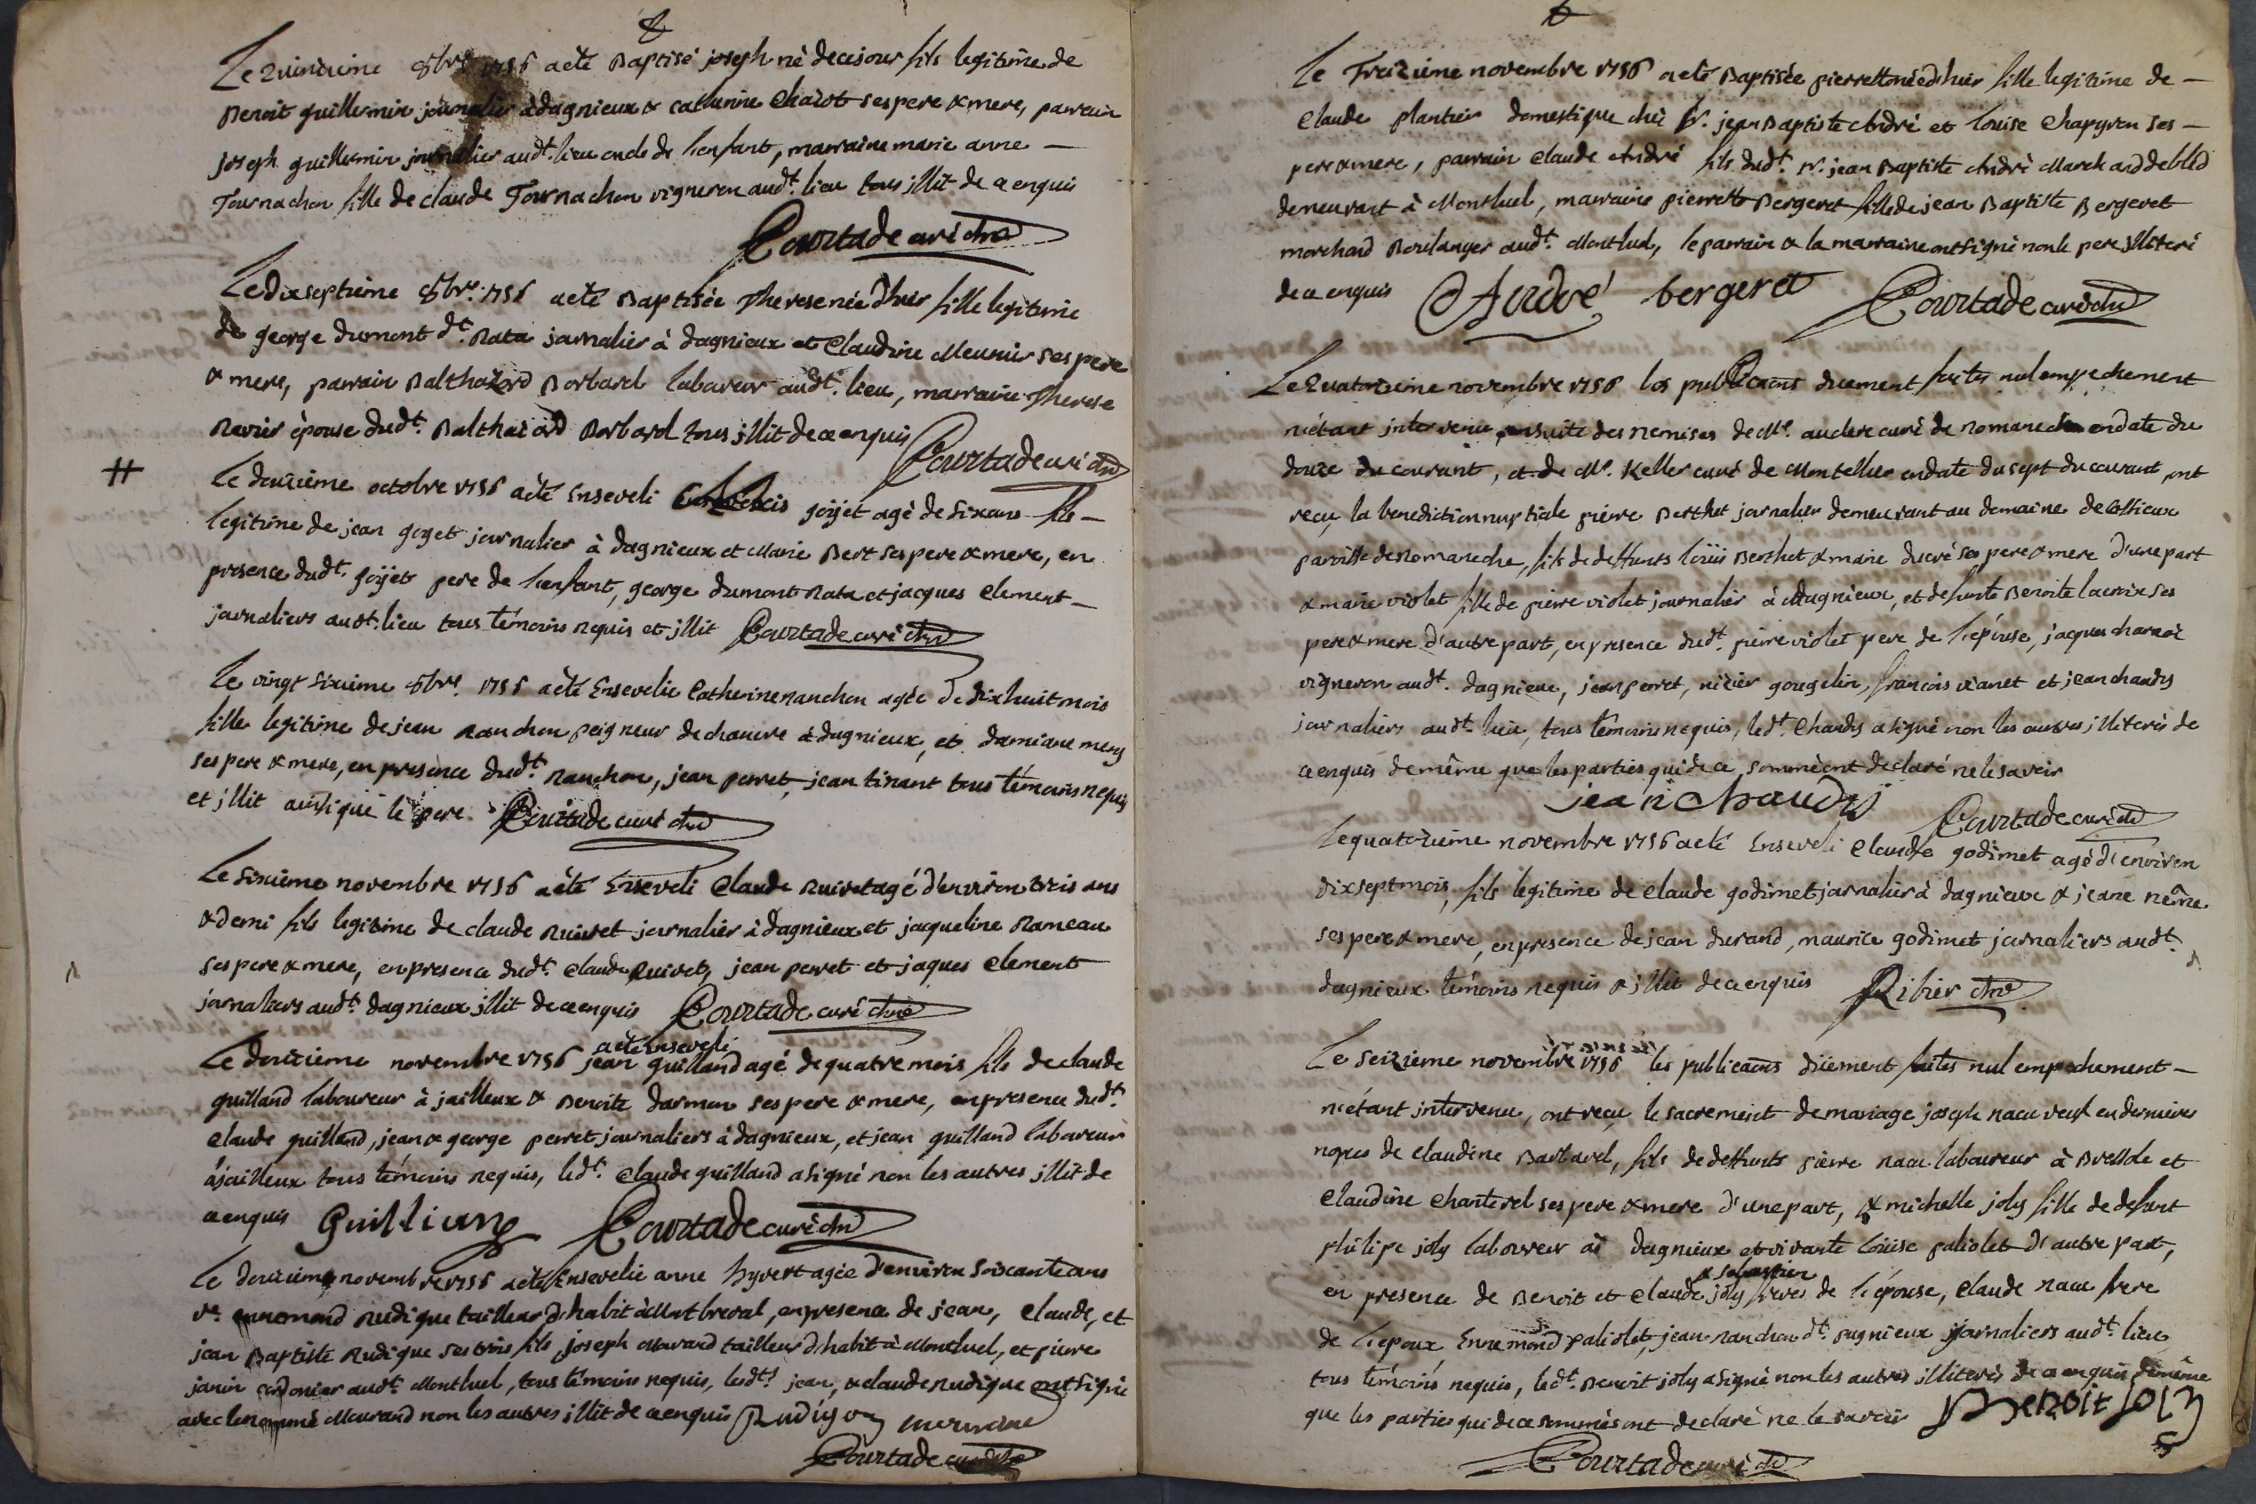 Le quinzieme 8bre 1756 a eté Baptisé joseph né de ce jour fils legitime de
Benoit guillermin journalier à dagnieux & catherine Chazot ses pere & mere, parrain
joseph guillermin journalier audt. lieu oncle de l'enfant, marraine marie anne
Tournachon fille de claude Tournachon vigneron audt. lieu tous illit de ce enquis
Courtade curé
Le dix septieme 8bre. 1756 a eté Baptisée Therese née d'hier fille legitime
de george dumont dt. Rata jornalier à dagnieux et Claudine Meunier ses pere
& mere, parrain Balthazard Barbarel laboureur audt. lieu, marraine Therese
Ravier épouse dudt. Balthazard Barbarel tous illit de ce enquis
Courtade curé
Le deuxieme octobre 1756 a eté Enseveli goyet agé de six ans fils
legitime de jean goyet jornalier à dagnieux et Marie Bert ses pere & mere, en
presence dudt. goyet pere de l'enfant, george dumont Rata et jacques Clement
jornaliers audt. lieu tous témoins requis et illit Courtade curé
Le vingt sixieme 8bre. 1756 a eté Ensevelie Catherine nanchon agée de dix huit mois
fille legitime de jean nanchon peigneur de chanvre à dagnieux, et damiane
ses pere & mere, en presence dudt. nanchon, jean perret, jean tinant tous témoins requis
et illit ainsi que le pere. Courtade curé
Le sixieme novembre 1756 a eté Enseveli Claude Ruivet agé d'environ trois ans
& demi fils legitime de claude Ruivet jornalier à dagnieux et jaqueline Rameau
ses pere & mere, en presence dudt. Claude Ruivet, jean perret et jaques Clement
jornaliers audt. dagnieux illit de ce enquis Courtade curé
a eté Enseveli
Le douzieme novembre 1756 jean guilland agé de quatre mois fils de claude
guilland laboureur à jailleux & Benoite darmon ses pere & mere, en presence dudt.
Claude guilland, jean & george perret journaliers à dagnieux, et jean guilland laboureur
à jailleux tous témoins requis, ledt. Claude guilland a signé non les autres illit de
ce enquis Guilliand Courtade curé
Le douzieme novembre 1756 a eté Ensevelie anne hyvert agée d'environ soixante ans
ve. ennemond Rudique tailleur d'habit à Montbreval, en presence de jean, Claude, et
jean Baptiste Rudique ses trois fils, joseph Mourand tailleur d'habit à Montluel, et pierre
janin cordonier audt. Montluel, tous témoins requis, lesdts. jean, & claude Rudique ont signé
avec le nommé Mourand non les autres illit de ce enquis
Courtade curé
Le Treizieme novembre 1756 a eté Baptisée pierrette née d'hier fille legitime de
Claude plantier domestique chez Sr. jean Baptiste André et Louise Chapyron ses
pere & mere, parrain Claude André fils dudt. Sr. jean Baptiste André Marchand de bled
demeurant à Montluel, marraine pierrette Bergeret fille de jean Baptiste Bergeret
marchand Boulanger audt. Montluel, le parrain & la marraine ont signé non le pere illiteré
de ce enquis C André bergeret Courtade curé
Le quatorzieme novembre 1756 les publicaons duement faites nul empechement
n'étant intervenu, ensuite des remises de Mr. auclerc curé de romaneche en date du
douze du courant, et de Mr. Keller curé de Montellier en date du sept du courant, ont
reçu la benediction nuptiale pierre Berthet jornalier demeurant au domaine de
paroisse de Romaneche, fils de deffunts loüis Berthet & marie ducré ses pere & mere d'une part
& marie violet fille de pierre violet journalier à dagnieux, et defunte Benoite lacroix ses
pere & mere d'autre part, en presence dudt. pierre violet pere de l'épouse, jacques charvoz
vigneron audt. dagnieux, jean perret, nizier gougelin, françois vianet et jean chardy
jornaliers audt. lieu, tous témoins requis, ledt. Chardy a signé non les autres illiterés de
ce enquis de même que les parties qui de ce sommé ont declaré ne le savoir
jean chardy Courtade curé
Le quatorzieme novembre 1756 a eté Enseveli Claude godimet agé d'environ
dix sept mois, fils legitime de Claude godimet jornalier à dagnieux & jeane néme
ses pere & mere, en presence de jean durand, maurice godimet jornaliers audt.
dagnieux témoins requis & illit de ce enquis Ribier
Le seizieme novembre 1756 les publicaons düement faites nul empechement
n'étant intervenu, ont reçu le sacrement de mariage joseph nacu veuf en dernieres
noces de Claudine Barbarel, fils de deffunts pierre nacu laboureur à Bressole et
Claudine Chanterel ses pere & mere d'une part, & michelle joly fille de defunt
philipe joly laboureur à dagnieux et vivante loüise paliolet d'autre part,
& sebastien
en presence de Benoit et Claude joly freres de l'épouse, Claude nacu frere
de l'epoux Ennemond paliolet, jean nanchon dt. pugnieux jornaliers audt. lieu
tous témoins requis, ledt. Benoit joly a signé non les autres illiterés de ce enquis de même
que les parties qui de ce sommés ont declaré ne le savoir Benoit Joly
Courtade curé